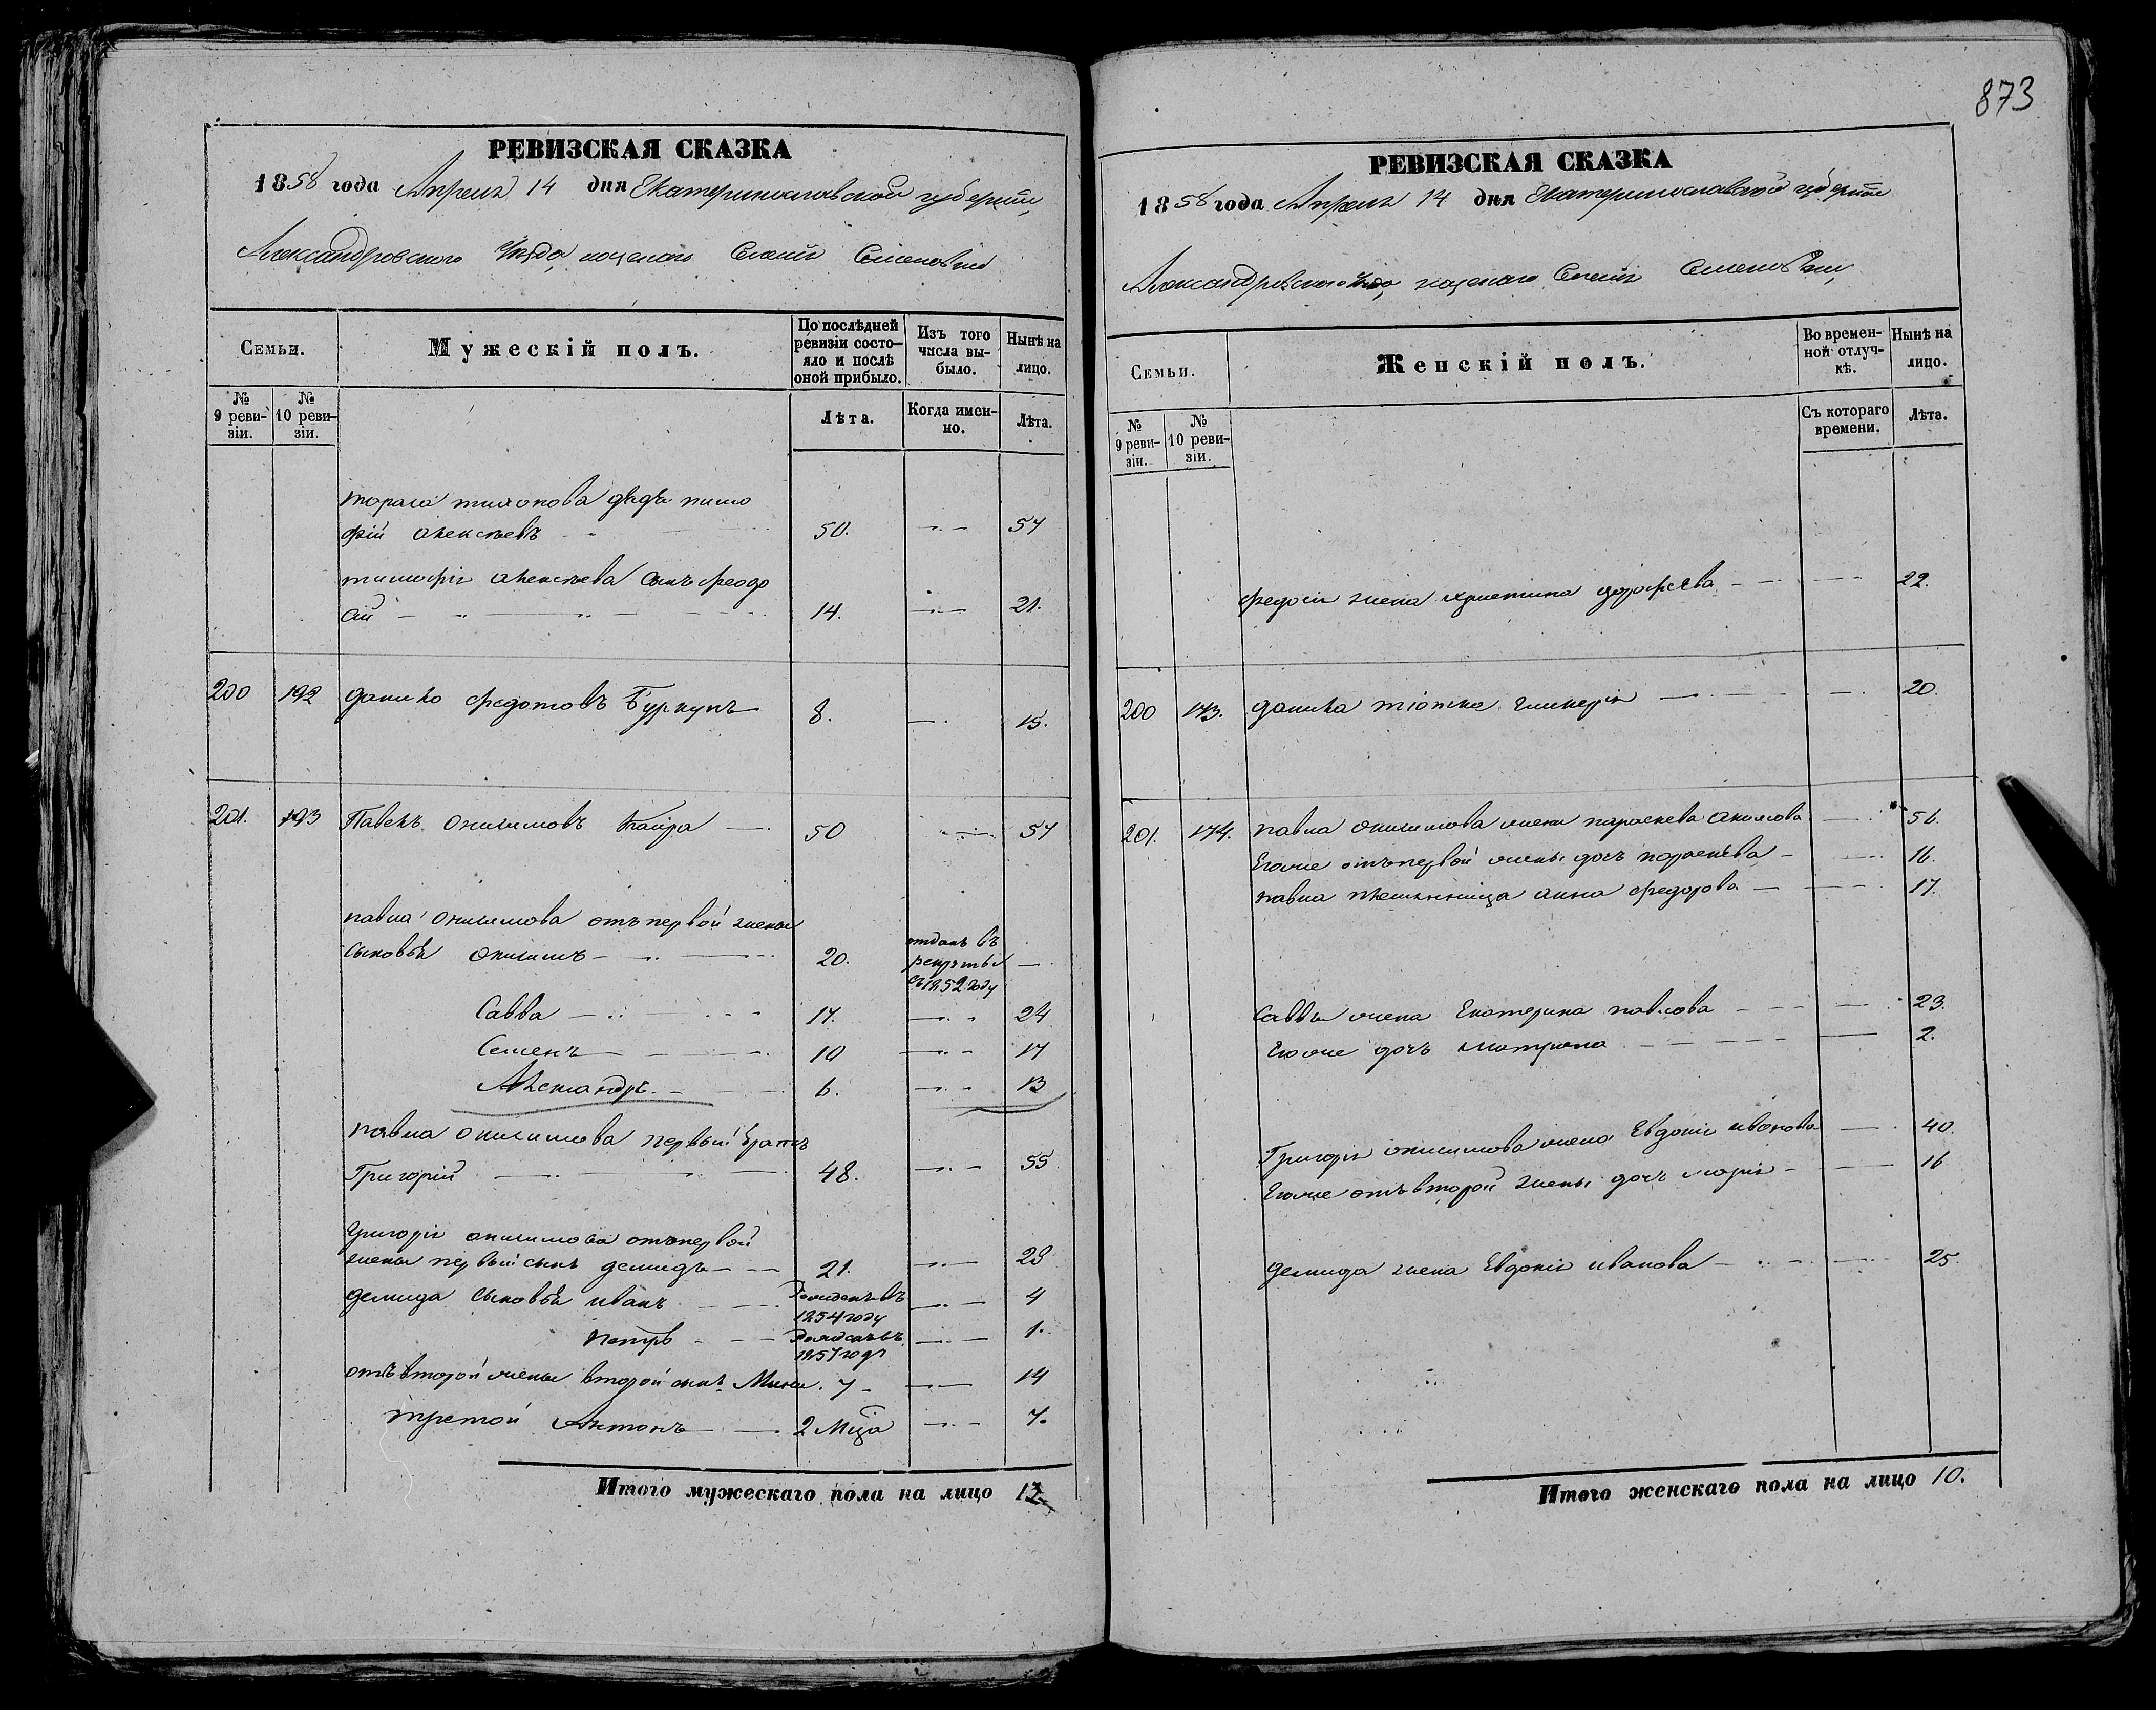 873
РЕВИЗСКАЯ СКАЗКА
1858 года Апреля 14 дня Екатеринославской губернии,
Александровского Уезда, Семеновки
Семьи. Мужескій полъ. По послѣдней ревизіи состояло и послѣ оной прибыло. Изъ того числа выбыло. Нынѣ на лицо.
№ 9 ревизіи. № 10 ревизіи. Лѣта. Когда именно. Лѣта.
тараса тихонова дядя тимо
фій алексѣевъ 50. 57
тимофія алексѣева сынъ феодо
сій 14. 21.
200 192 данило федотовъ Буркунъ 8. 15.
201. 193 Павелъ онисимовъ 50 57
павла онисимова отъ первой жены
сыновья онисимъ 20. отданъ въ рекруты въ 1852 году
Савва 17. 24
Семенъ 10 17
Александръ 6. 13
павла онисимова первый братъ
Григорій 48. 55
григорія онисимова отъ первой
жены первый сынъ демидъ 21. 28
демида сыновья иванъ рожденъ въ 1854 году 4
петръ рожденъ въ 1857 году 1.
отъ второй жены второй сынъ Мина 7 14
третой Антонъ 2 Мца 7.
Итого мужескаго пола на лицо
РЕВИЗСКАЯ СКАЗКА
1858 года Апреля 14 дня Екатеринославской губернии
Александровского Уезда, Семеновки,
Семьи. Женскій полъ. Во временной отлучкѣ. Нынѣ на лицо.
№ 9 ревизіи. № 10 ревизіи. Съ котораго времени. Лѣта.
федосія жена христина дорофѣева 22.
200 173. данила тіотка гликерія 20.
201. 174. павла онисимова жена параскева акимова 56.
Егоже отъ первой жены дочь параскева 16.
павла племянница анна федорова 17.
Саввы жена Екатерина павлова 23.
Егоже дочь матрона 2.
Григорія онисимова жена Евдокія иванова 40.
Егоже отъ второй жены дочь марія 16
демида жена Евдокія иванова 25.
Итого женскаго пола на лицо 10.